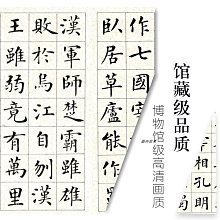 作七國宰
臥居草廬能作
漢軍師楚霸雖雄
敗於烏江自刎漢
王雖弱竟有萬里
馆藏级品质
博物馆级高清画质
相孔明